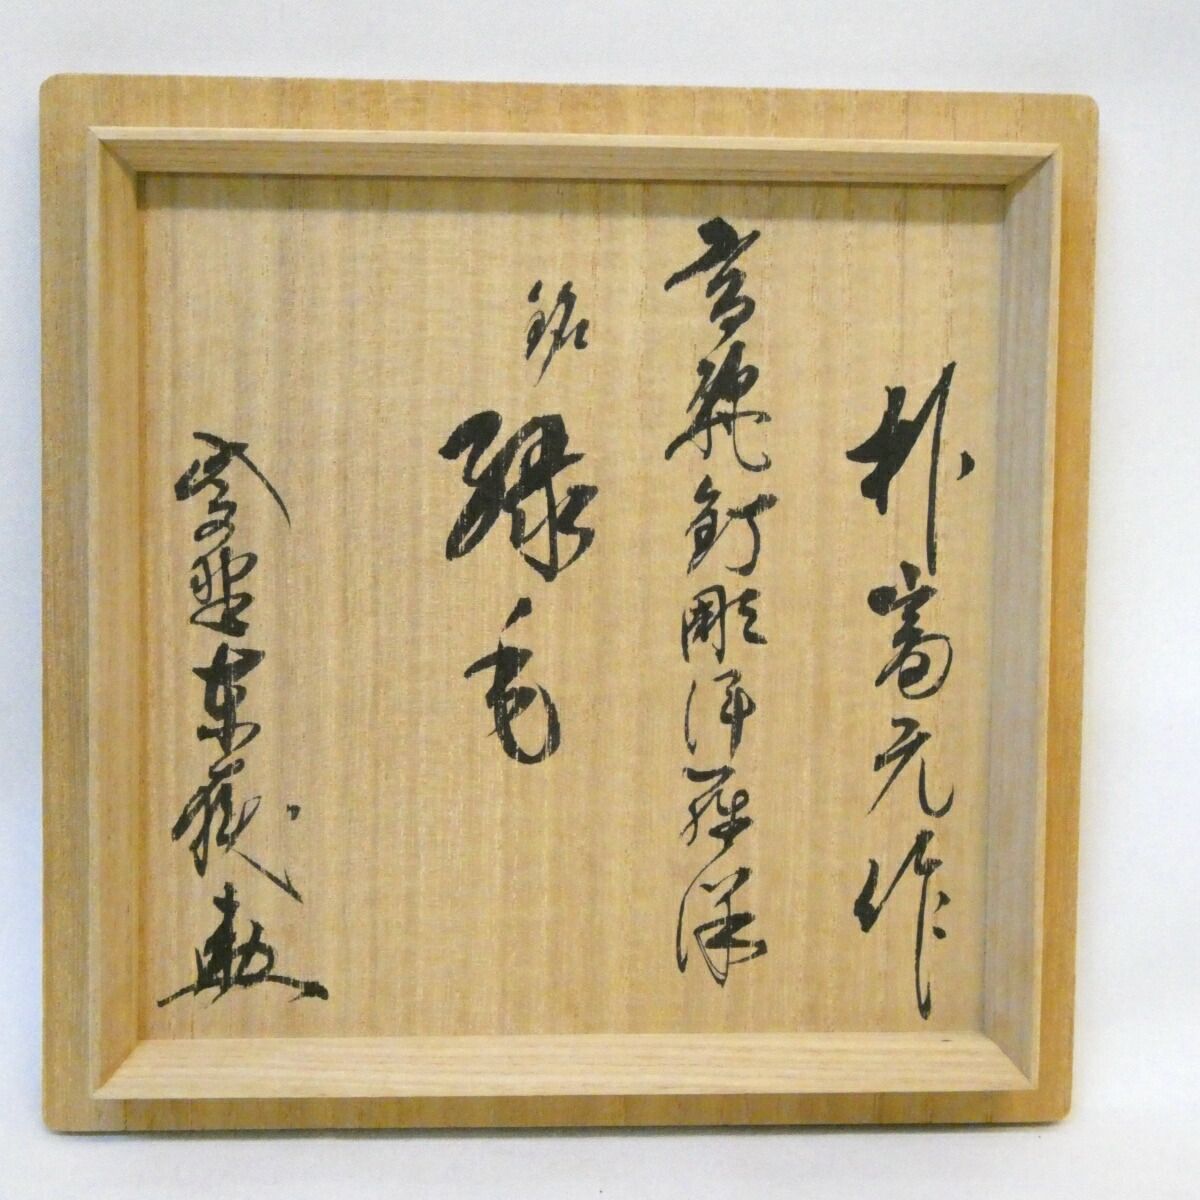 朴富元作
高麗釘彫伊羅保
銘
緑毛
紫埜東嶽